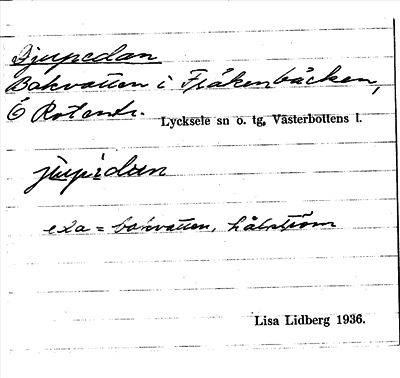 Djupedan
Bakvatten i Fråkenbäcken,
Ö Rotentr. Lycksele sn o. tg, Västerbottens l.
eda = bakvatten, hålström
Lisa Lidberg 1936.